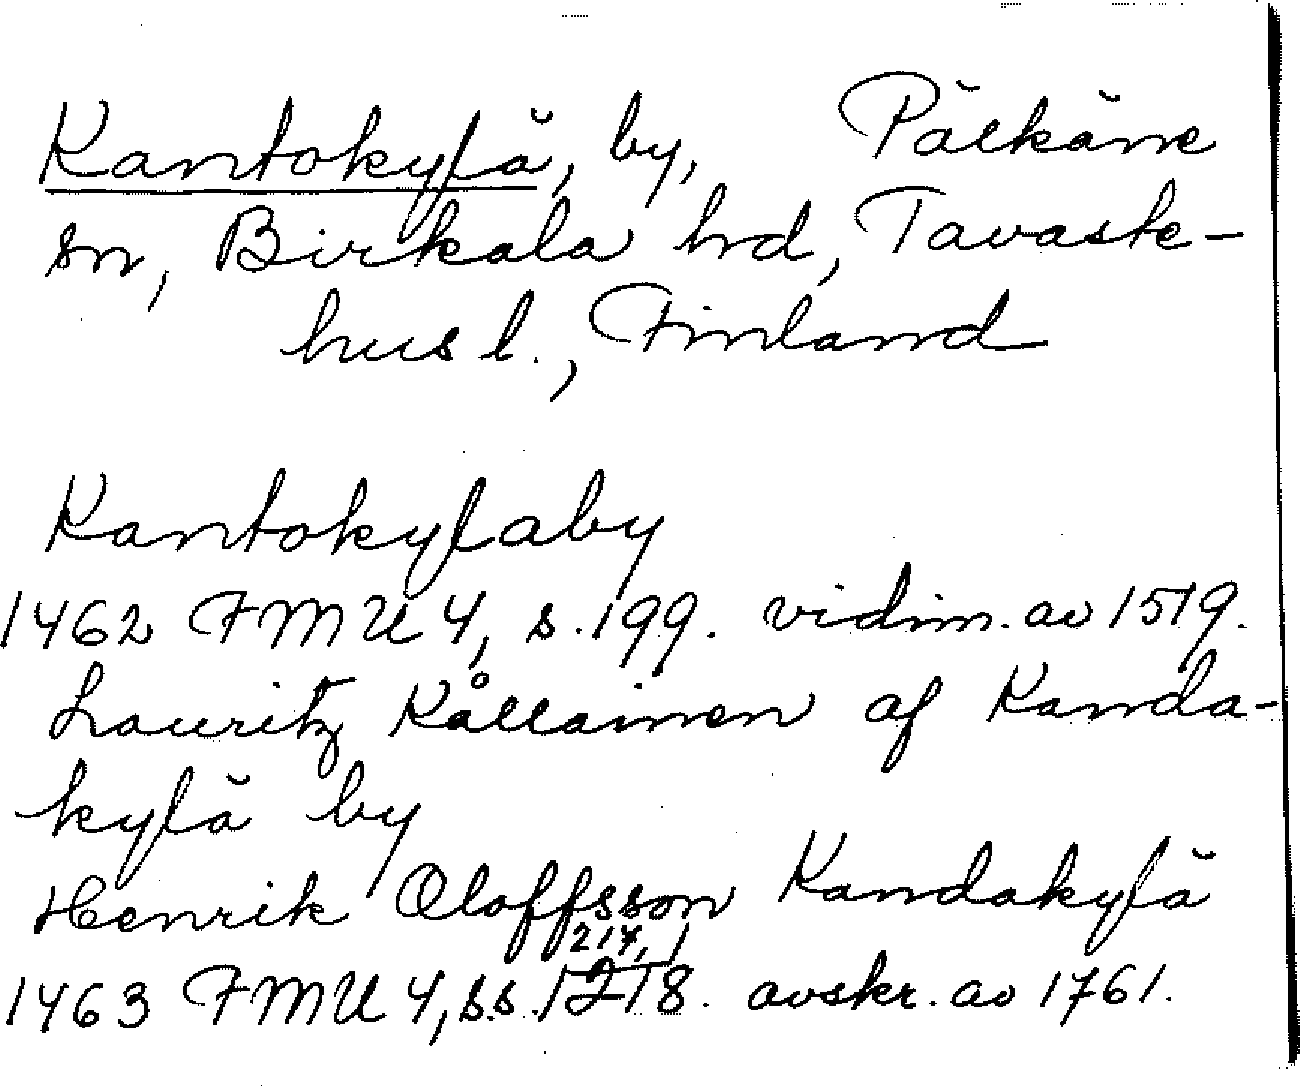 Kantokylä, by, Pälkäne
sn, Birkala hd, Tavaste-
hus l., Finland
Kantokylaby
1462 FMU 4, s. 199. vidim. av 1519.
Lauritz Kållainen af Kanda-
kylä by
Henrik Oloffsson Kandakylä
217,
1463 FMU 4, s.s. 218. avskr. av 1761.